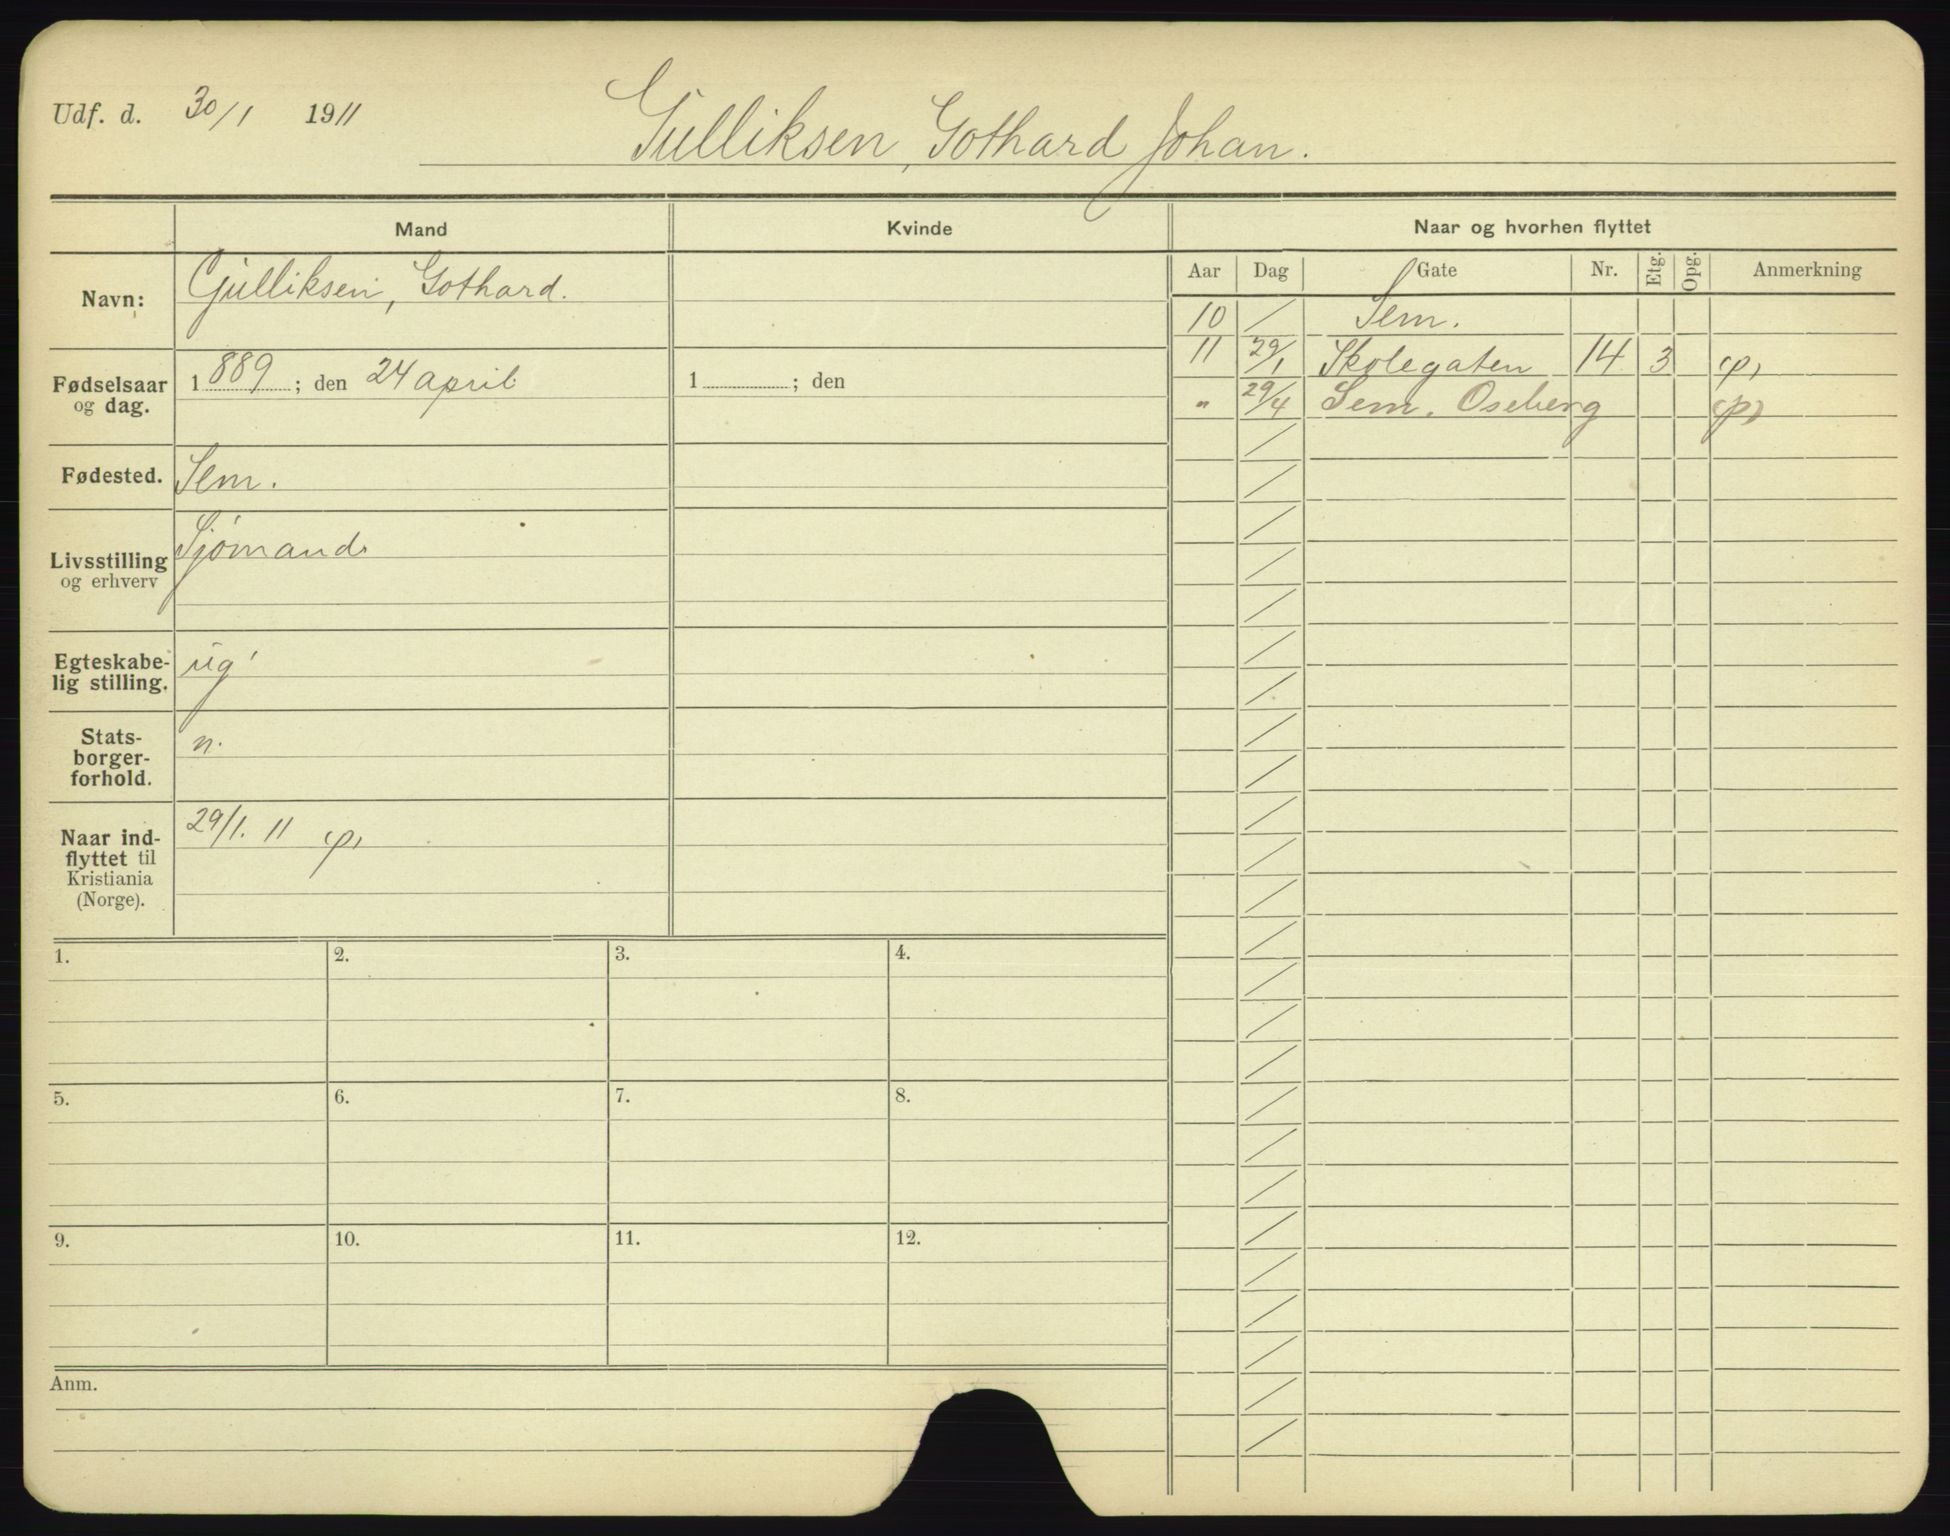 Udf. d. 30/1 1911
Gulliksen, Gothard Johan.
Mand Kvinde Naar og hvorhen flyttet
Aar Dag Gate Nr. Etg. Opg. Anmerkning
Navn: Gulliksen, Gothard.
10 / Sem.
11 29/1 Skolegaten 14 3
Fødselsaar og dag. 1889; den 24 april 1 ; den
" 29/4 Sem. Oseberg
Fødested. Sem.
Livsstilling og erhverv Sjømand
Egteskabe-
lig stilling. ug
Stats-
borger-
forhold. n.
Naar ind-
flyttet til
Kristiania
(Norge). 29/1. 11
1. 2. 3. 4.
5. 6. 7. 8.
9. 10. 11. 12.
Anm.